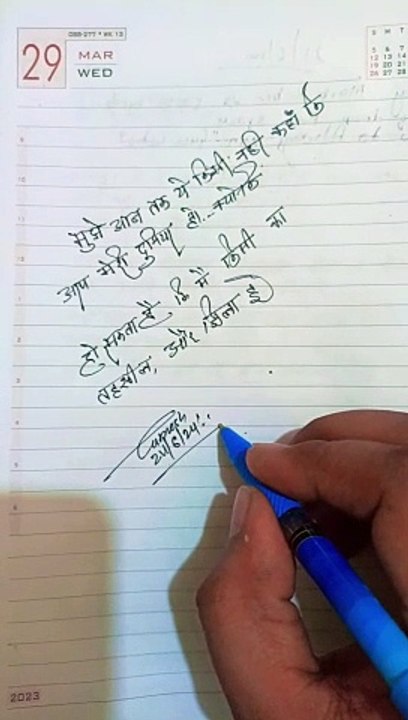 088-277 • WK 13
29
MAR
WED
S M T
5 6 7
12 13 14
19 20 21
26 27 28
मुझे आज तक ये किसी नही कहाँ कि
आप मेरी दुनियां हो... क्योकि
हो सकता है, कि मै किसी का
तहसील, और जिला है
24/6/24
2023